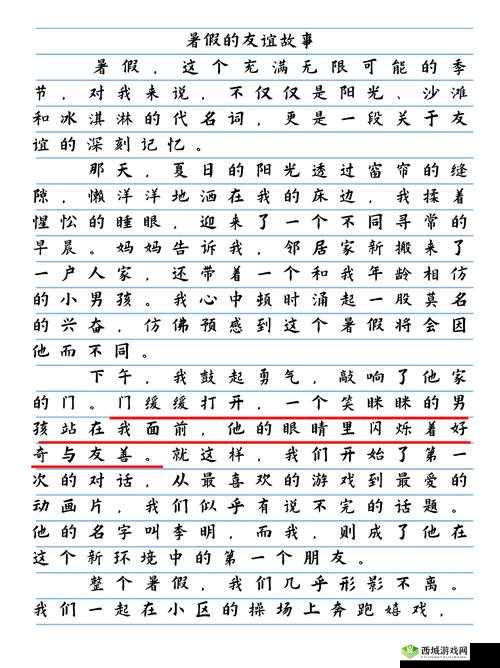 暑假的友谊故事
暑假，这个充满无限可能的季
节，对我来说，不仅仅是阳光、沙滩
和冰淇淋的代名词，更是一段关于友
谊的深刻记忆。
那天，夏日的阳光透过窗帘的缝
隙，懒洋洋地洒在我的床边，我揉着
惺忪的睡眼，迎来了一个不同寻常的
早晨。妈妈告诉我，邻居家新搬来了
一户人家，还带着一个和我年龄相仿
的小男孩。我心中顿时涌起一股莫名
的兴奋，仿佛预感到这个暑假将会因
他而不同。
下午，我鼓起勇气，敲响了他家
的门。门缓缓打开，一个笑眯眯的男
孩站在我面前，他的眼睛里闪烁着好
奇与友善。就这样，我们开始了第一
次的对话，从最喜欢的游戏到最爱的
动画片，我们似乎有说不完的话题。
他的名字叫李明，而我，则成了他在
这个新环境中的第一个朋友。
整个暑假，我们几乎形影不离。
我们一起在小区的操场上奔跑嬉戏，
西城游戏网